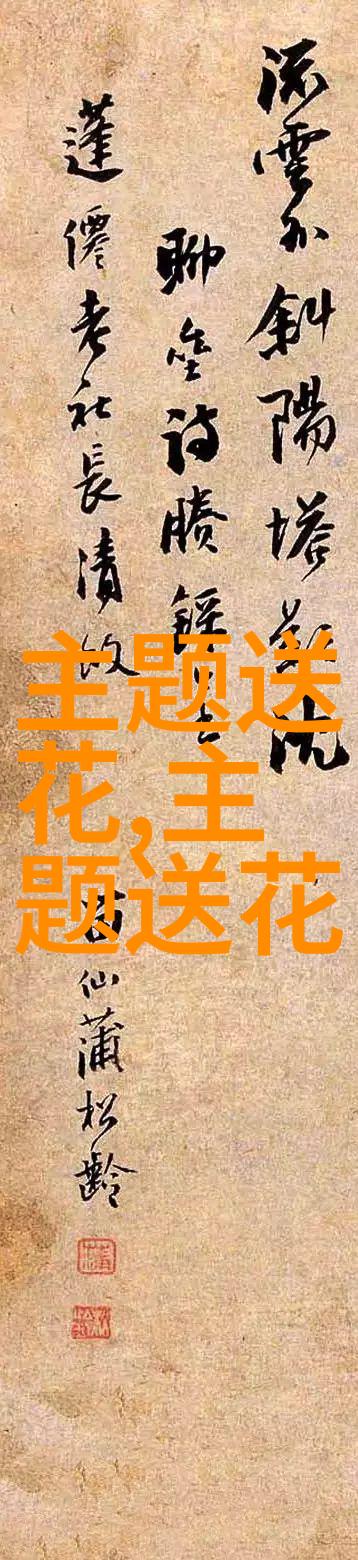 流雲外斜陽塔影沈
聊壺詩賸
蓬僊老社長清
仙蒲松齡
主题送
花,主
题送花